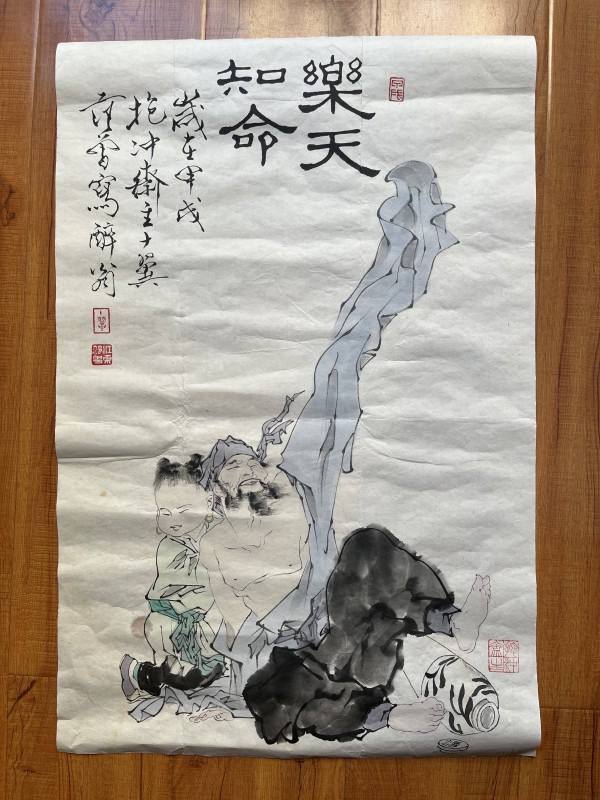 樂天
知命
歲在甲戌
抱冲齋主十翼
范曾寫醉翁